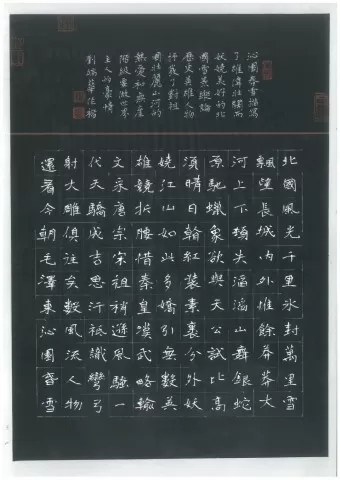 沁園春雪描寫
了雄偉壯闊而
妖嬈美好的北
國雪景縱論
歷史英雄人物
抒發了對祖
國壯麗山河的
熱愛和無産
階級要做世界
主人的豪情
劉端華
北國風光千里冰封萬里雪
飄望長城内外惟餘莽莽大
河上下頓失滔滔山舞銀蛇
原馳蠟象欲與天公試比高
須晴日看紅裝素裹分外妖
嬈江山如此多嬌引無數英
雄競折腰惜秦皇漢武略輸
文采唐宗宋祖稍遜風騷一
代天驕成吉思汗祇識彎弓
射大雕俱往矣數風流人物
還看今朝毛澤東沁園春雪